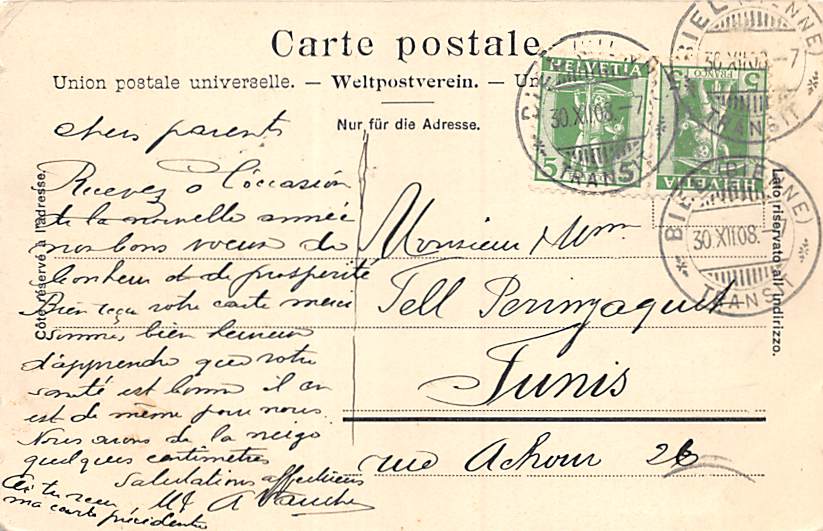 Carte postale.
Union postale universelle. — Weltpostverein. — Un
Nur für die Adresse.
Côté réservé à l'adresse.
Lato riservato all'indirizzo.
HELVETIA
5 5
HELVETIA
FRANCO
5 5
BIEL (BIENNE)
30.XII.08.-7
TRANSIT
BIEL (BIENNE)
30.XII.08.-7
TRANSIT
BIEL (BIENNE)
30.XII.08.-7
TRANSIT
chers parents
Recevez à l'occasion
de la nouvelle année
nos bons voeux de
bonheur et de prosperité
Bien reçu votre carte merci
sommes bien heureux
d'apprendre que votre
santé est bonne il en
est de même pour nous.
Nous avons de la neige
quelques centimètres
Salutations affectueuses
As tu reçu
ma carte précédente
Monsieur Mme
Tell Perinjaquet
Tunis
rue Achour 26